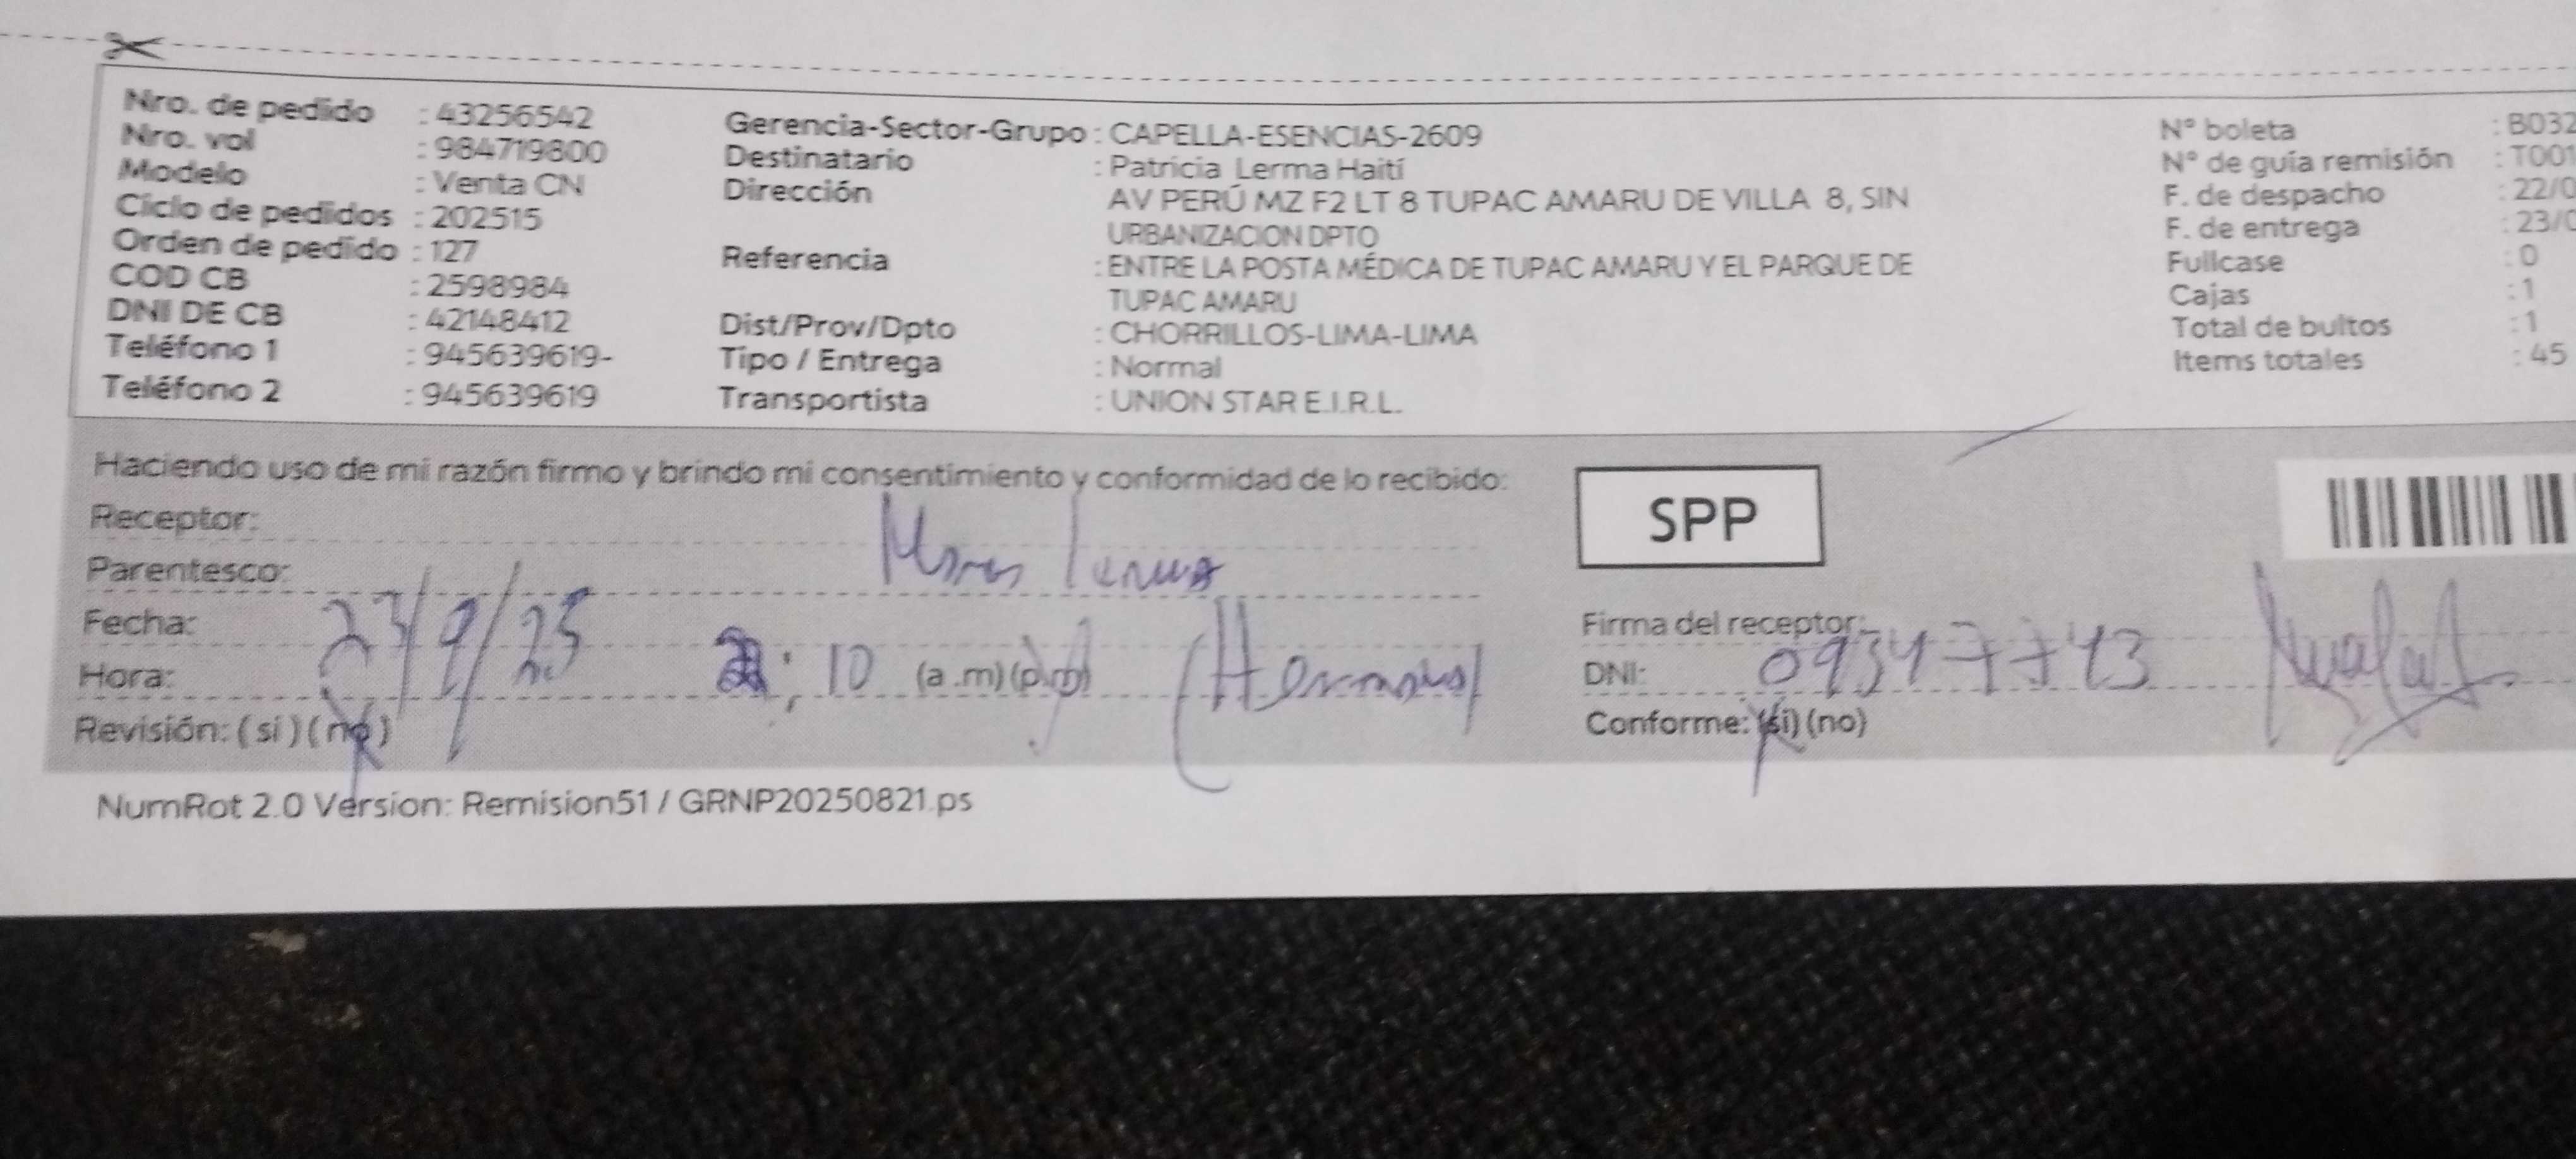 Nro. de pedido : 43256542
Nro. vol : 984719800
Modelo : Venta CN
Ciclo de pedidos : 202515
Orden de pedido : 127
COD CB : 2598984
DNI DE CB : 42148412
Teléfono 1 : 945639619-
Teléfono 2 : 945639619
Gerencia-Sector-Grupo : CAPELLA-ESENCIAS-2609
Destinatario : Patricia Lerma Haití
Dirección AV PERÚ MZ F2 LT 8 TUPAC AMARU DE VILLA 8, SIN
URBANIZACION DPTO
Referencia : ENTRE LA POSTA MÉDICA DE TUPAC AMARU Y EL PARQUE DE
TUPAC AMARU
Dist/Prov/Dpto : CHORRILLOS-LIMA-LIMA
Tipo / Entrega : Normal
Transportista : UNION STAR E.I.R.L.
N° boleta : B032
N° de guía remisión : T001
F. de despacho : 22/0
F. de entrega : 23/0
Fullcase : 0
Cajas : 1
Total de bultos : 1
Items totales : 45
Haciendo uso de mi razón firmo y brindo mi consentimiento y conformidad de lo recibido:
Receptor:
Parentesco:
Fecha: 23/9/25
Hora: 2:10 (a.m)(p.m)
Revisión: (si)(no)
SPP
Firma del receptor:
DNI:
Conforme: (si)(no)
NumRot 2.0 Version: Remision51 / GRNP20250821.ps